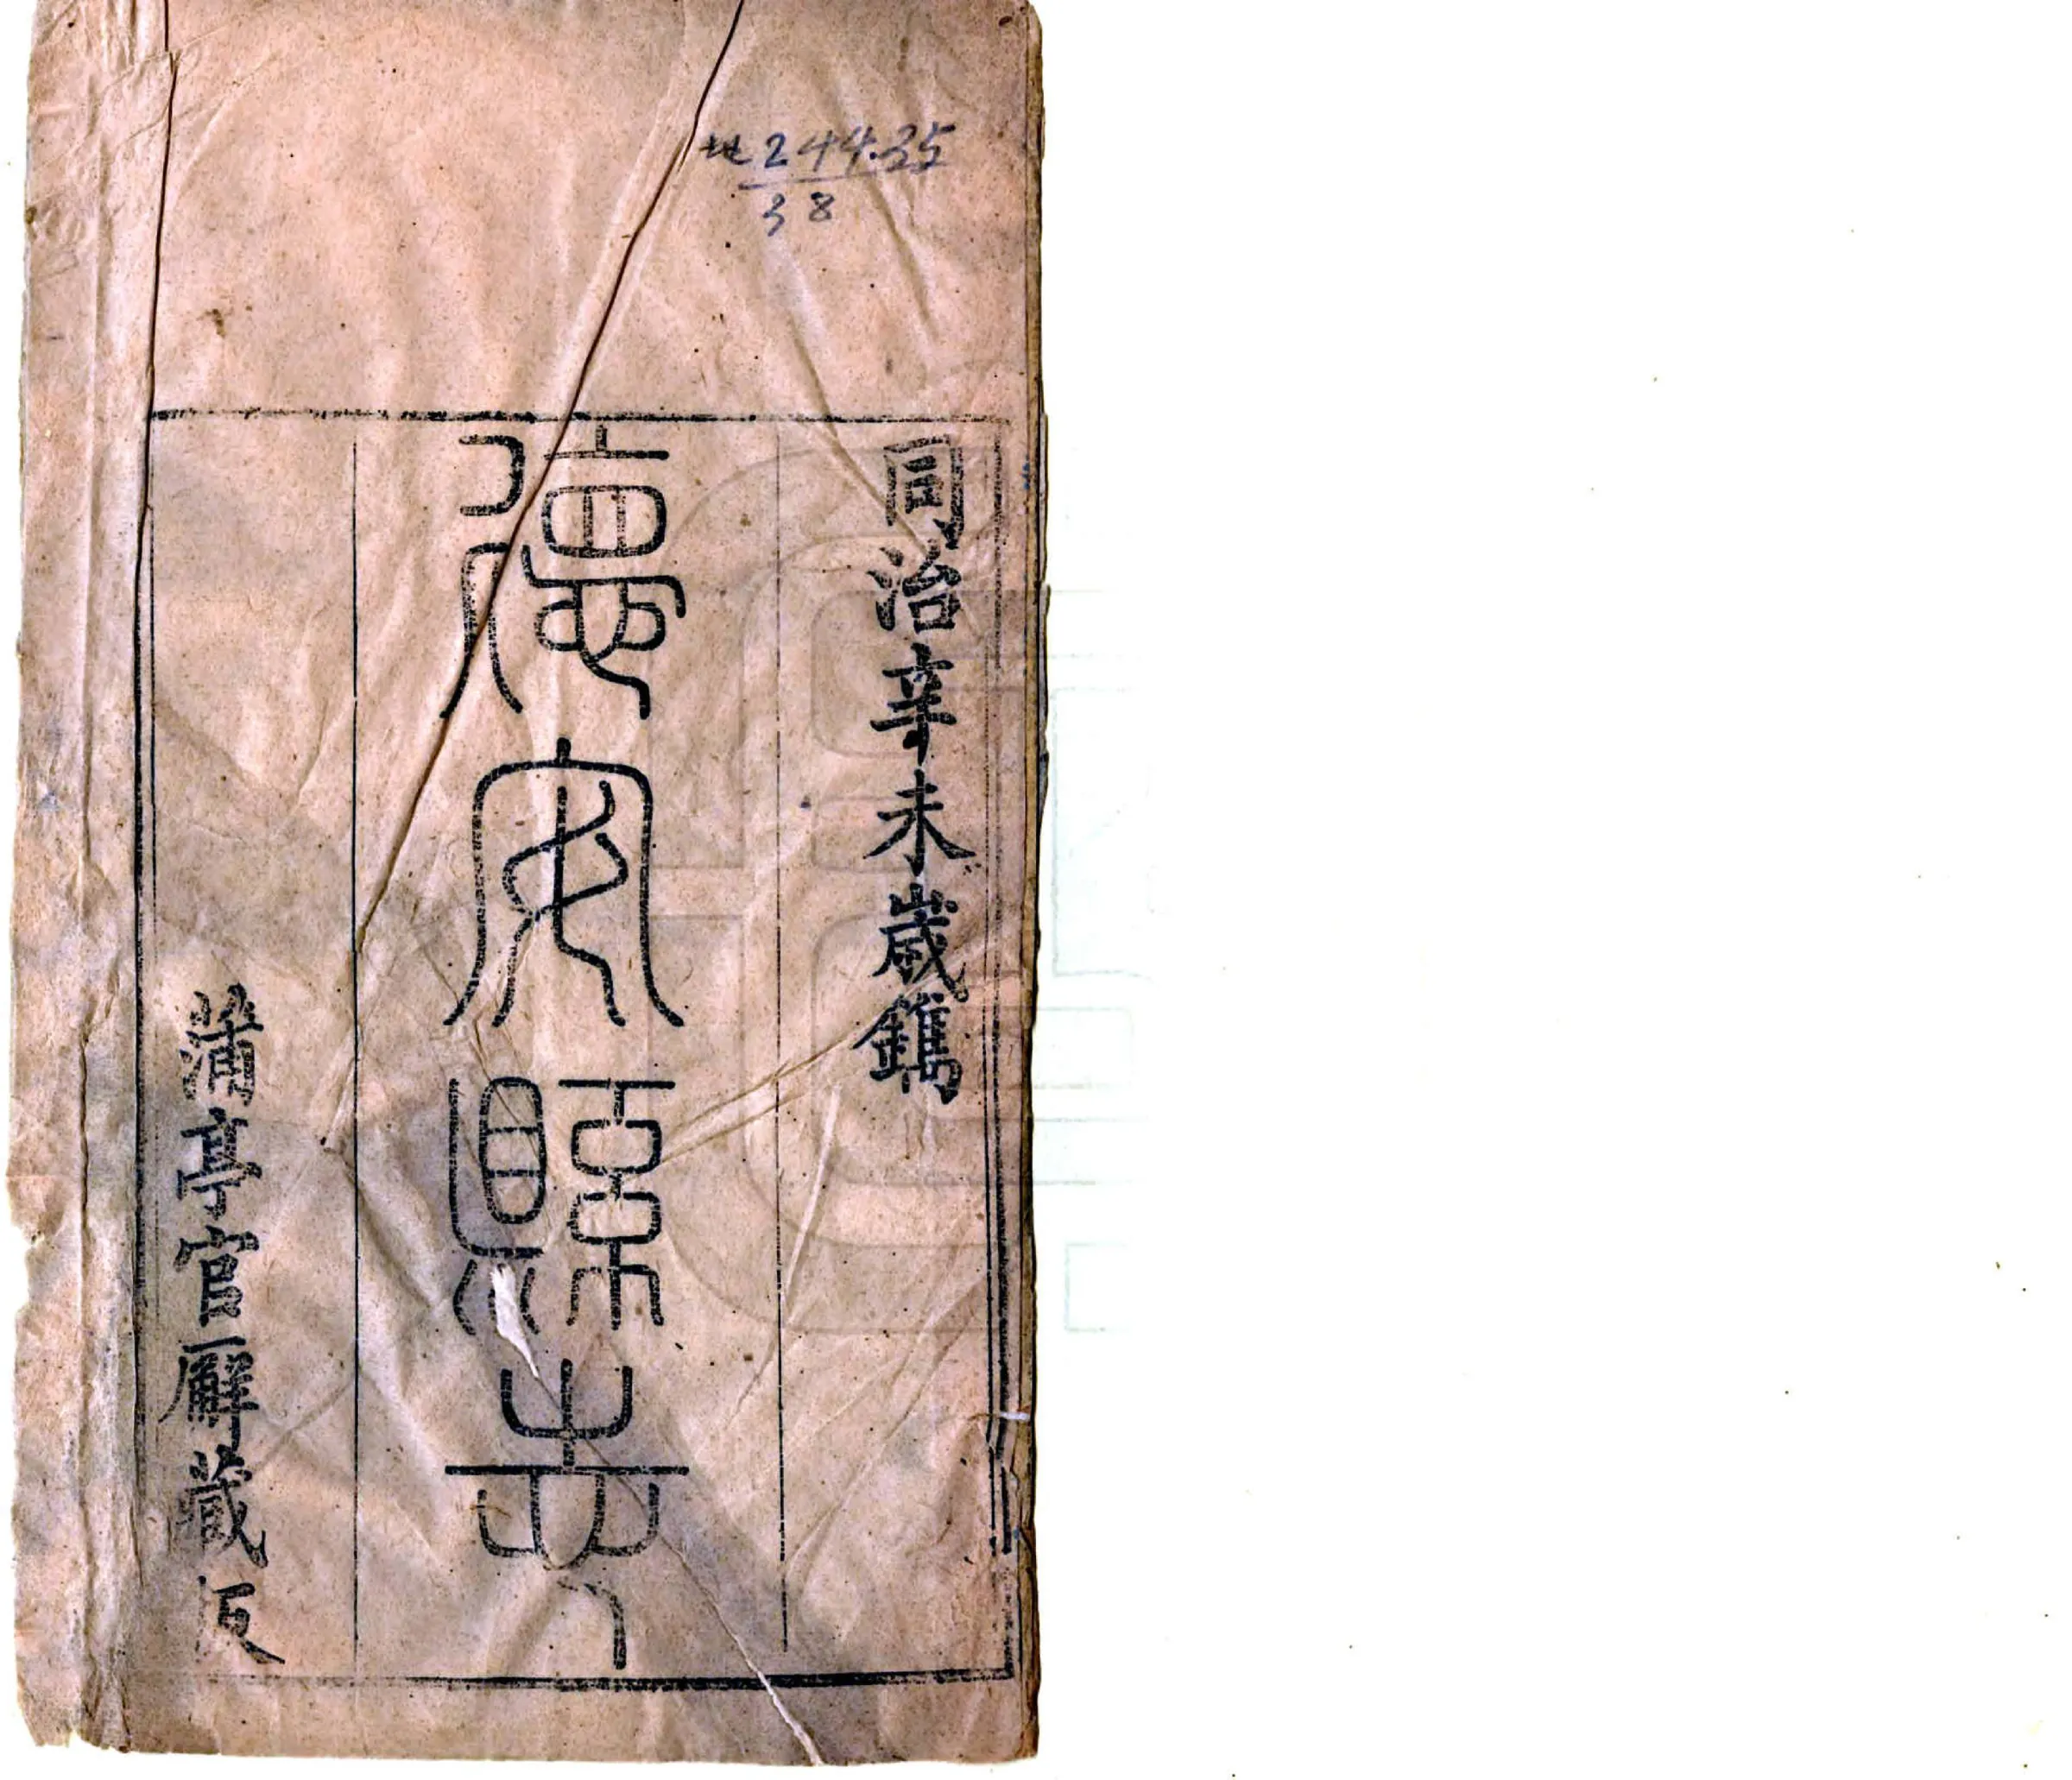 地244.35
38
同治辛未歲鐫
德安縣志
蒲亭官廨藏版